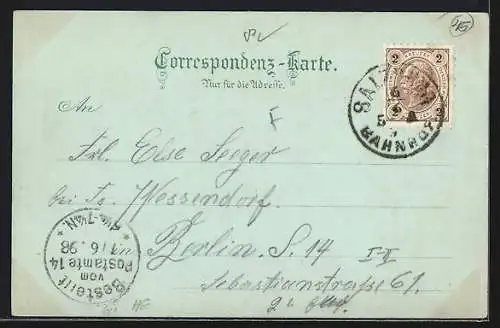 45
Correspondenz-Karte.
Nur für die Adresse.
2 2
2 2
BAHNHOF
An
F
Frl. Else Seeger
bei Fr. Wessendorf
Berlin. S. 14
I-II
Sebastianstraße 61.
Bestellt
vom
Postamte 14
1/6. 98
N.